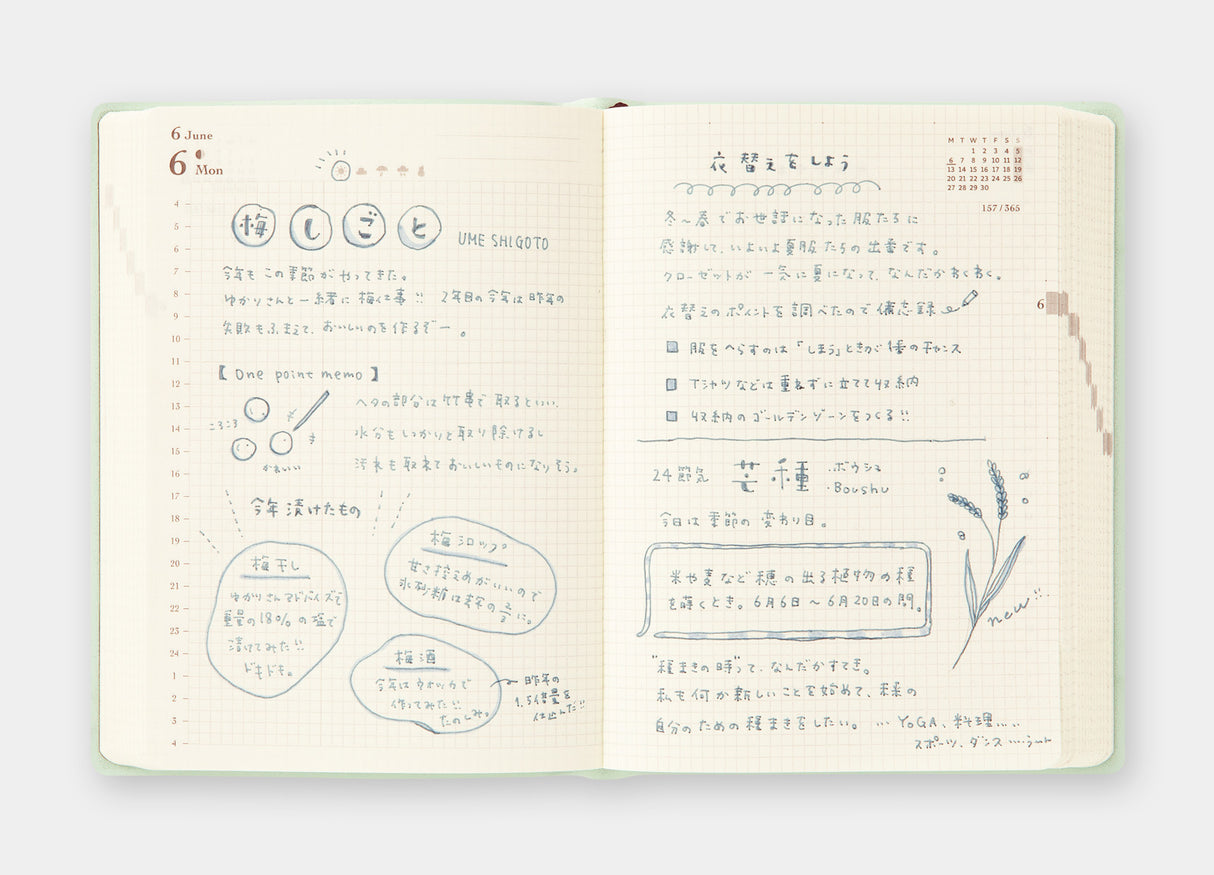 6 June
6 Mon
4
5
6
7
8
9
10
11
12
13
14
15
16
17
18
19
20
21
22
23
24
1
2
3
4
梅しごと UME SHIGOTO
今年もこの季節がやってきた。
ゆかりさんと一緒に梅仕事!! 2年目の今年は昨年の
失敗もふまえて、おいしいのを作るぞー。
【One point memo】
ころころ
かわいい
ヘタの部分は竹串で取るといい。
水分もしっかりと取り除けるし
汚れも取れておいしいものになりそう。
今年漬けたもの
梅干し
ゆかりさんアドバイスで
重量の18%の塩で
漬けてみた!!
ドキドキ。
梅シロップ
甘さ控えめがいいので
氷砂糖は
に。
梅酒
今年はウォッカで
作ってみた!!
たのしみ。
昨年の
1.5倍量を
仕込んだ!!
衣替えをしよう
M T W T F S S
1 2 3 4 5
6 7 8 9 10 11 12
13 14 15 16 17 18 19
20 21 22 23 24 25 26
27 28 29 30
157/365
冬〜春でお世話になった服たちに
感謝して、いよいよ夏服たちの出番です。
クローゼットが一気に夏になって、なんだかわくわく。
衣替えのポイントを調べたので備忘録
服をへらすのは「しまう」ときが1番のチャンス
Tシャツなどは重ねずに立てて収納
収納のゴールデンゾーンをつくる!!
6
24節気 芒種 ・ボウシュ
・Boushu
今日は季節の変わり目。
米や麦など穂の出る植物の種
を蒔くとき。6月6日〜6月20日の間。
new!!
"種まきの時"って、なんだかすてき。
私も何か新しいことを始めて、
自分のための種まきをしたい。… YOGA、料理……
スポーツ、ダンス……うーん